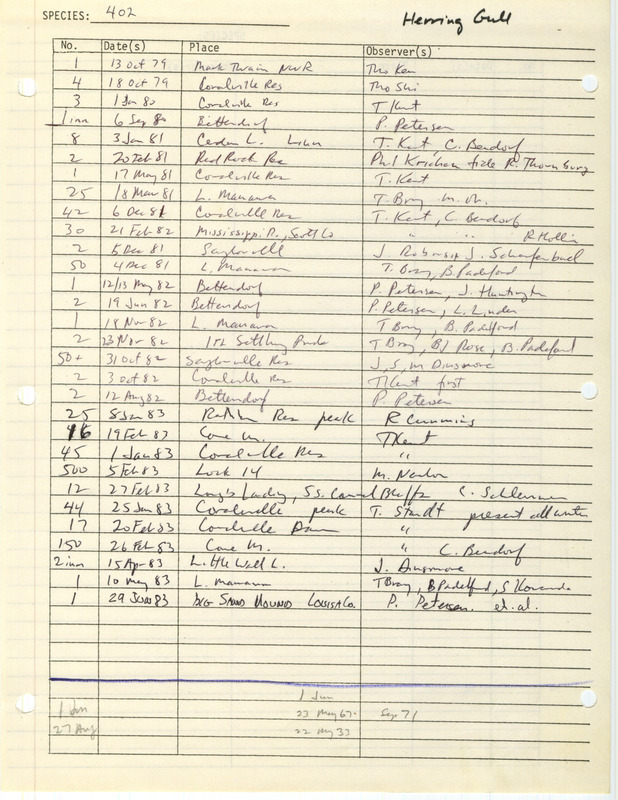 SPECIES: 402 Herring Gull
No. Date(s) Place Observer(s)
1 13 Oct 79 Mark Twain NWR Tho Ken
4 18 Oct 79 Coralville Res Tho Shi
3 1 Jan 80 Coralville Res T Kent
1 imm 6 Sep 80 Bettendorf P. Petersen
8 3 Jan 81 Cedar L. Linn T. Kent, C. Bendorf
2 20 Feb 81 Red Rock Res Phil Krichan fide R. Thornburg
1 17 May 81 Coralville Res T. Kent
25 18 Mar 81 L. Manawa T. Bray
42 6 Dec 81 Coralville Res T. Kent, C. Bendorf
30 21 Feb 82 Mississippi R., Scott Co " " R Hollis
2 5 Dec 81 Saylorville J Robinson J. Scharfenbuel
50 4 Dec 81 L. Manawa T. Bray, B. Padelford
1 12/13 May 82 Bettendorf P. Petersen, J. Huntington
2 19 Jun 82 Bettendorf P. Petersen, L. Linder
1 18 Nov 82 L. Manawa T Bray, B. Padelford
2 23 Nov 82 IPL Settling Ponds T Bray, BJ Rose, B. Padelford
50+ 31 Oct 82 Saylorville Res J, S, M Dinsmore
2 3 Oct 82 Coralville Res T Kent first
2 12 Aug 82 Bettendorf P. Petersen
25 8 Jan 83 Res peak R Cummins
16 19 Feb 83 Cone M. T Kent
45 1 Jan 83 Coralville Res "
500 5 Feb 83 Lock 14 M. Newlon
12 27 Feb 83 Long's Landing, S.S. Council Bluffs C. Schlemmer
44 25 Jan 83 Coralville peak T. Staudt present all winter
17 20 Feb 83 Coralville Dam "
150 26 Feb 83 Cone M. " C. Bendorf
2 imm 15 Apr 83 Little Wall L. J. Dinsmore
1 10 May 83 L. Manawa T Bray, B Padelford, S Kovanda
1 29 Jun 83 BIG SAND MOUND LOUISA Co. P. Petersen. et. al.
1 Jun
1 Jan 23 May 67 Sep 71
27 Aug 22 May 33